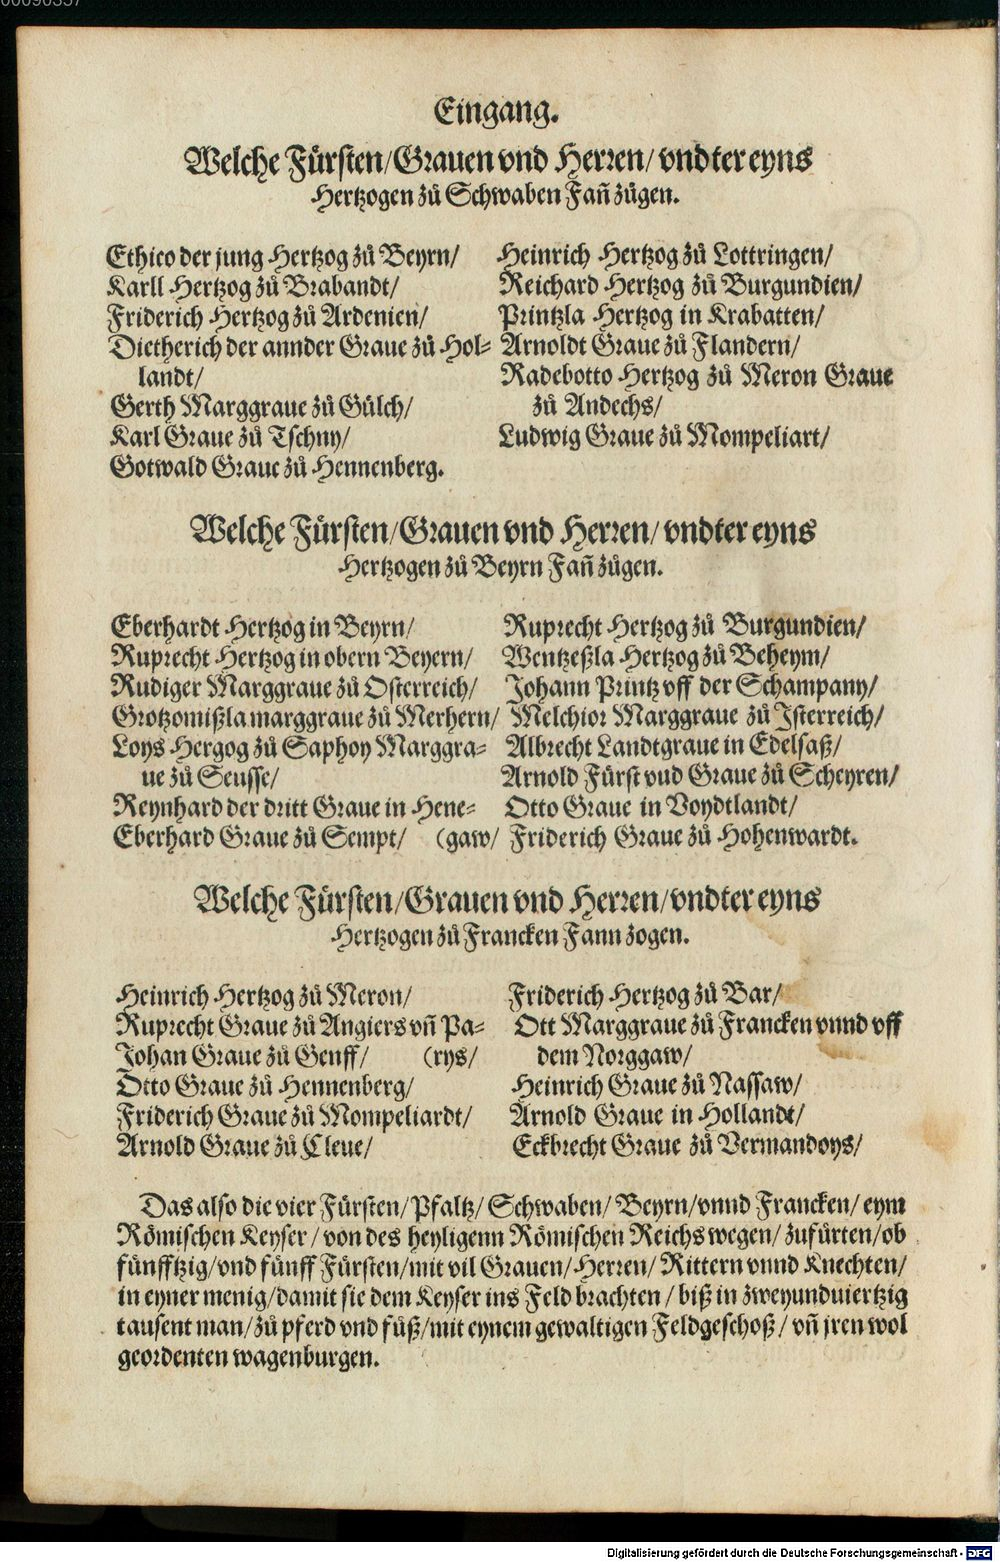 00090357
Eingang.
Welche Fürsten/Grauen vnd Herren/ vndter eyns
Hertzogen zů Schwaben Fañ zügen.
Ethico der jung Hertzog zů Beyrn/
Karll Hertzog zů Brabandt/
Friderich Hertzog zů Ardenien/
Dietherich der annder Graue zů Hol=
landt/
Gerth Marggraue zů Gülch/
Karl Graue zů Tschny/
Gotwald Graue zů Hennenberg.
Heinrich Hertzog zů Lottringen/
Reichard Hertzog zů Burgundien/
Printzla Hertzog in Krabatten/
Arnoldt Graue zů Flandern/
Radebotto Hertzog zů Meron Graue
zů Andechs/
Ludwig Graue zů Mompeliart/
Welche Fürsten/Grauen vnd Herren/ vndter eyns
Hertzogen zů Beyrn Fañ zügen.
Eberhardt Hertzog in Beyrn/
Ruprecht Hertzog in obern Beyern/
Rudiger Marggraue zů Osterreich/
Grotzomißla marggraue zů Merhern/
Loys Hergog zů Saphoy Marggra=
ue zů Seusse/
Reynhard der dritt Graue in Hene=
Eberhard Graue zů Sempt/ (gaw/
Ruprecht Hertzog zů Burgundien/
Wentzeßla Hertzog zů Beheym/
Johann Printz vff der Schampany/
Melchior Marggraue zů Jsterreich/
Albrecht Landtgraue in Edelsaß/
Arnold Fürst vud Graue zů Scheyren/
Otto Graue in Voydtlandt/
Friderich Graue zů Hohenwardt.
Welche Fürsten/Grauen vnd Herren/vndter eyns
Hertzogen zů Francken Fann zogen.
Heinrich Hertzog zů Meron/
Ruprecht Graue zů Angiers vñ Pa=
Johan Graue zů Genff/ (rys/
Otto Graue zů Hennenberg/
Friderich Graue zů Mompeliardt/
Arnold Graue zů Cleue/
Friderich Hertzog zů Bar/
Ott Marggraue zů Francken vnnd vff
dem Norggaw/
Heinrich Graue zů Nassaw/
Arnold Graue in Hollandt/
Eckbrecht Graue zů Vermandoys/
Das also die vier Fürsten/Pfaltz/ Schwaben/ Beyrn/vnnd Francken/ eym
Römischen Keyser/ von des heyligenn Römischen Reichs wegen/ zufürten/ob
fünfftzig/vnd fünff Fürsten/mit vil Grauen/Herren/ Rittern vnnd Knechten/
in eyner menig/damit sie dem Keyser ins Feld brachten/ biß in zweyunduiertzig
tausent man/zů pferd vnd fůß/mit eynem gewaltigen Feldgeschoß/ vñ jren wol
geordenten wagenburgen.
Digitalisierung gefördert durch die Deutsche Forschungsgemeinschaft - DFG